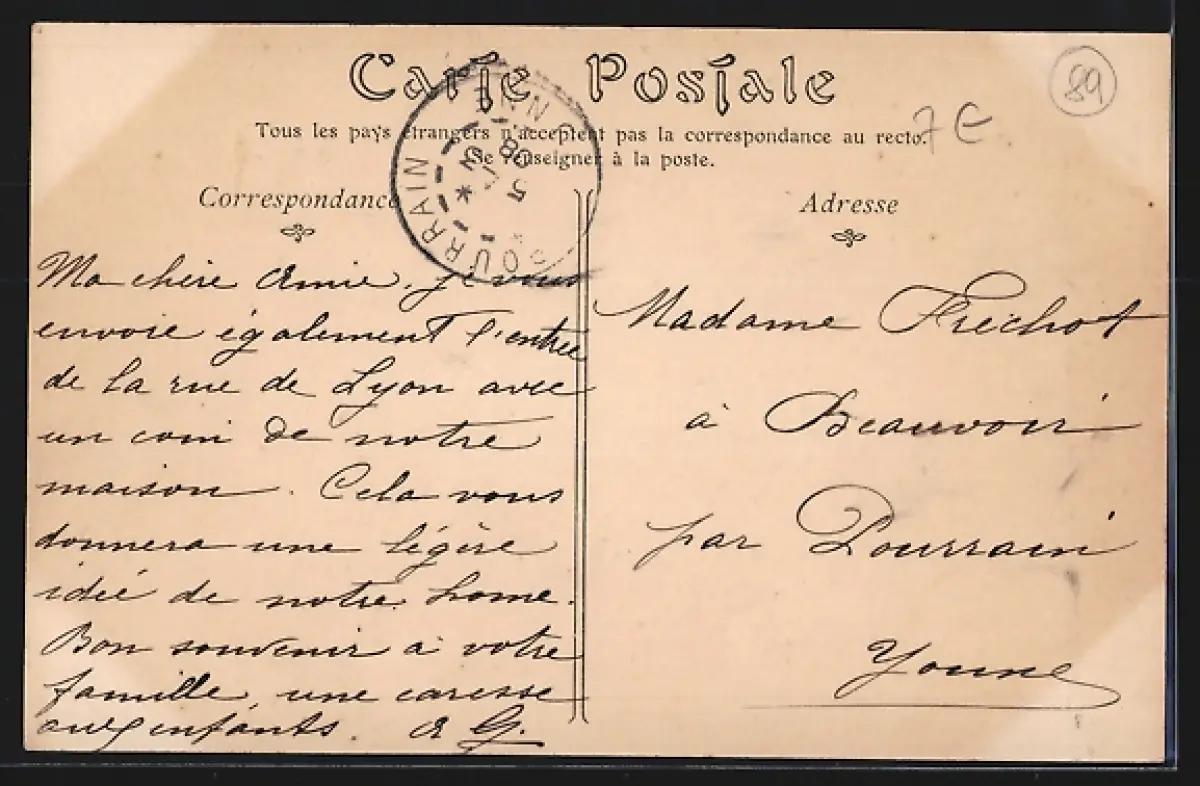 Carte Postale
Tous les pays étrangers n'acceptent pas la correspondance au recto.
Se renseigner à la poste.
7 €
89
Correspondance
Ma chère Amie, je vous
envoie également l'entrée
de la rue de Lyon avec
un coin de notre
maison. Cela vous
donnera une légère
idée de notre home.
Bon souvenir à votre
famille, une caresse
aux enfants. A G.
Adresse
Madame Fréchot
à Beauvoir
par Pourrain
Yonne
POURRAIN YONNE